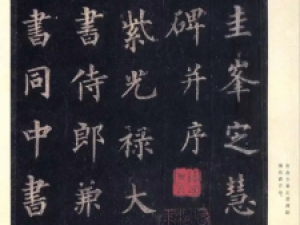 圭峯定慧
碑并序
紫光禄大
書侍郎兼
書同中書